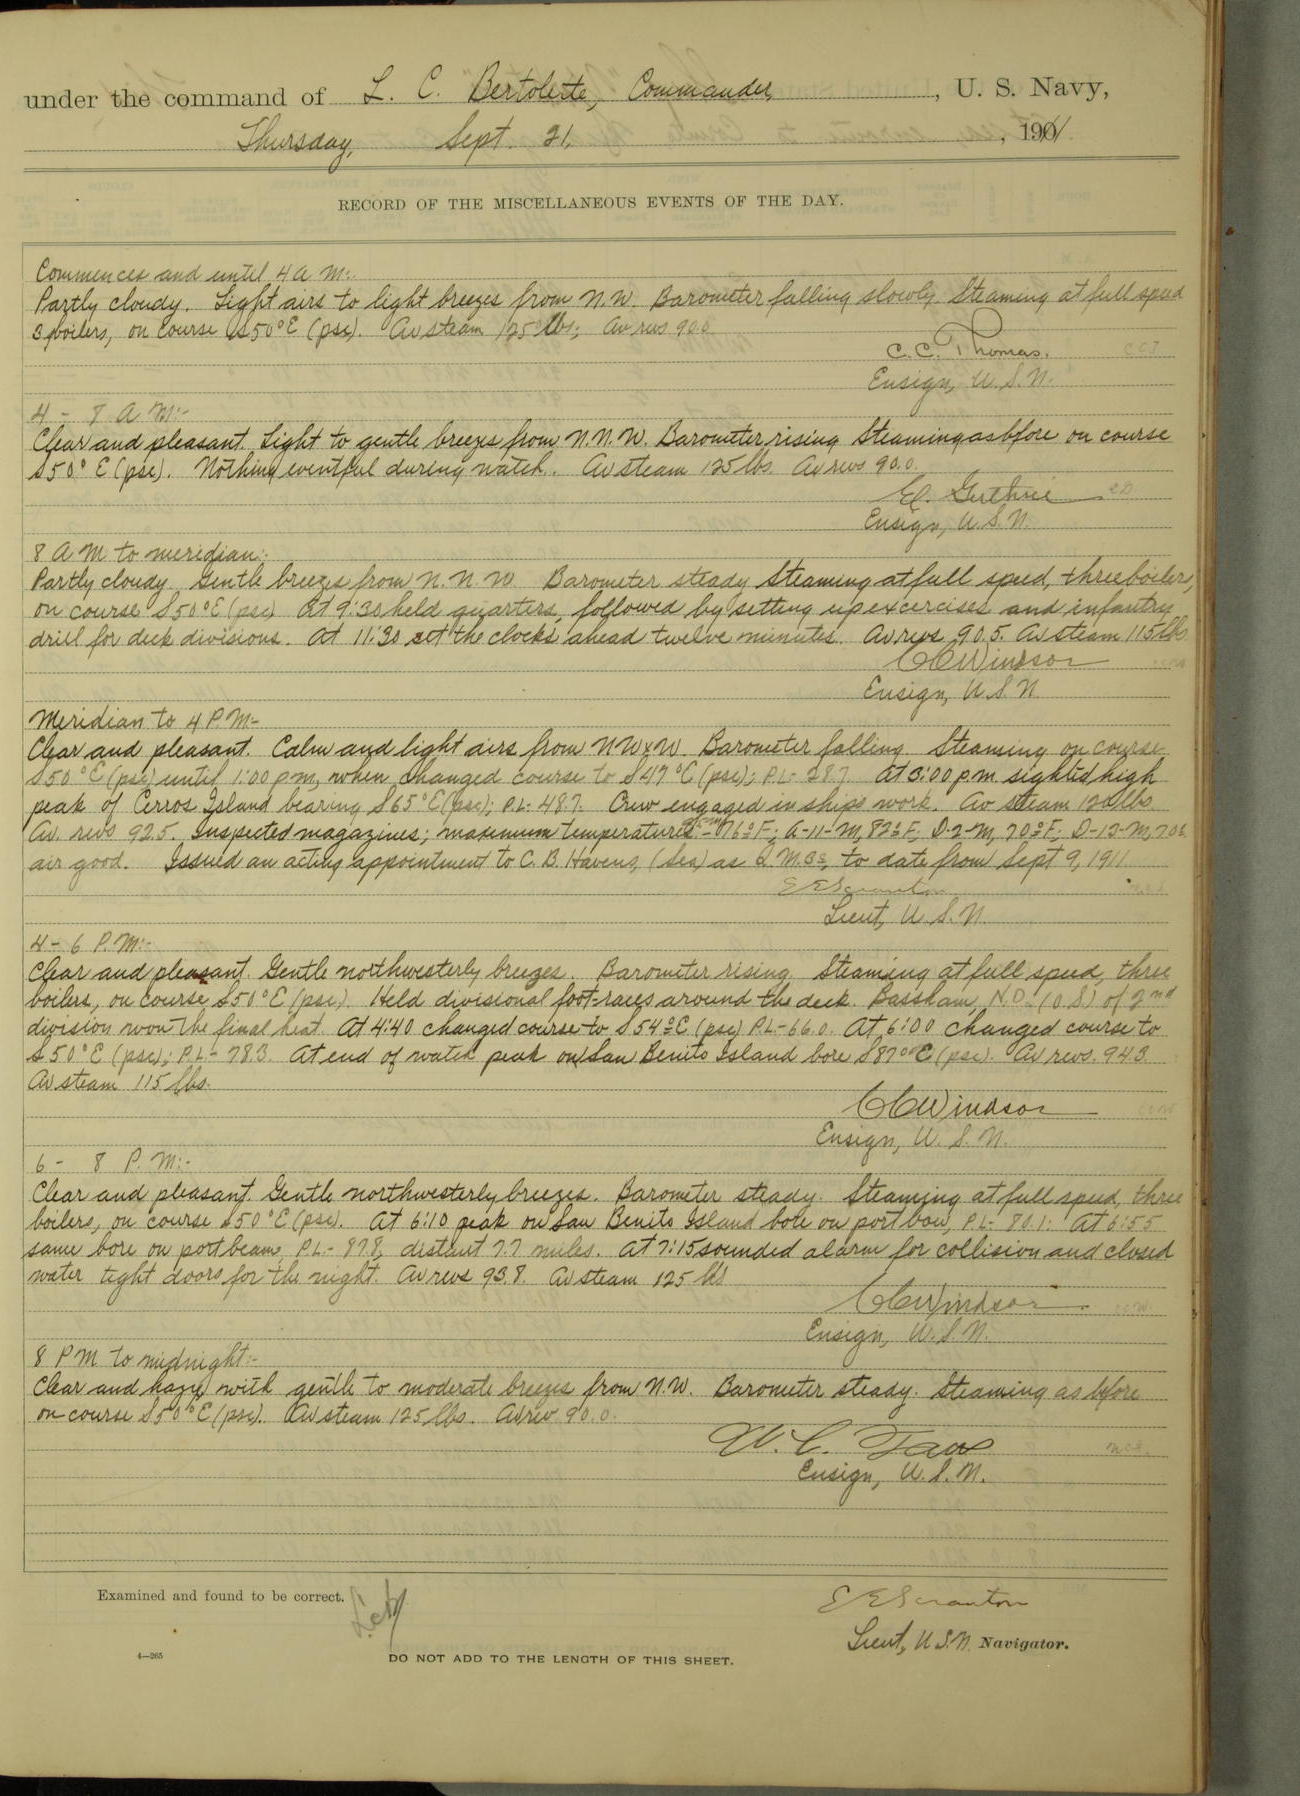 under the command of L. C. Bertolette, Commander, U. S. Navy,
Thursday, Sept. 21, 1911
RECORD OF THE MISCELLANEOUS EVENTS OF THE DAY.
Commences and until 4 A M:-
Partly cloudy. Light airs to light breezes from N.W. Barometer falling slowly. Steaming at full speed
3 boilers, on course S50°E (psc). Av steam 125 lbs; Av revs 90.0
C. C. Thomas.
Ensign, U. S. N.
4 - 8 A M:-
Clear and pleasant. Light to gentle breezes from N.N.W. Barometer rising. Steaming as before on course
S50°E (psc). Nothing eventful during watch. Av steam 125 lbs. Av revs 90.0.
Guthrie
Ensign, U. S. N.
8 A M to meridian:-
Partly cloudy. Gentle breezes from N. N. W. Barometer steady. Steaming at full speed, three boilers,
on course S50°E (psc). At 9:30 held quarters, followed by setting up excercises and infantry
drill for deck divisions. At 11:30 set the clocks ahead twelve minutes. Av revs 90.5. Av steam 115 lbs.
CCWindsor
Ensign, U. S. N.
Meridian to 4 P M-
Clear and pleasant. Calm and light airs from NWxW. Barometer falling. Steaming on course
S50°E (psc) until 1:00 p m, when changed course to S47°E (psc); P.L- 28.7. At 3:00 p.m. sighted high
peak of Cerros Island bearing S65°E (psc); P.L- 48.7. Crew engaged in ships work. Av steam 120 lbs.
Av. revs 92.5. Inspected magazines; maximum temperatures - 76°F; A-11-M, 82°F; D-2-M, 70°F; D-12-M, 70°
air good. Issued an acting appointment to C. B. Havens, (Sea) as Q.M.3c, to date from Sept 9, 1911.
E E Scranton
Lieut, U. S. N.
4 - 6 P.M:-
Clear and pleasant. Gentle northwesterly breezes. Barometer rising. Steaming at full speed, three
boilers, on course S50°E (psc). Held divisional foot-races around the deck. Bassham, N.D. (O.S) of 2nd
division won the final heat. At 4:40 changed course to S54°E (psc) P.L-66.0. At 6:00 changed course to
S50°E (psc); P.L- 78.3. At end of watch peak on San Benito Island bore S87°E (psc). Av revs. 94.3.
Av steam 115 lbs.
CCWindsor
Ensign, U. S. N.
6 - 8 P. M:-
Clear and pleasant. Gentle northwesterly breezes. Barometer steady. Steaming at full speed, three
boilers, on course S50°E (psc). At 6:10 peak on San Benito Island bore on port bow, P.L- 80.1. At 6:55
same bore on port beam, P.L- 87.8, distant 7.7 miles. At 7:15 sounded alarm for collision and closed
water tight doors for the night. Av revs 93.8. Av steam 125 lbs
CCWindsor
Ensign, U. S. N.
8 P M to midnight:-
Clear and hazy with gentle to moderate breezes from N.W. Barometer steady. Steaming as before
on course S50°E (psc). Av steam 125 lbs. Av rev 90.0.
Ensign, U. S. N.
Examined and found to be correct.
E E Scranton
Lieut, U S.N. Navigator.
4—265
DO NOT ADD TO THE LENGTH OF THIS SHEET.